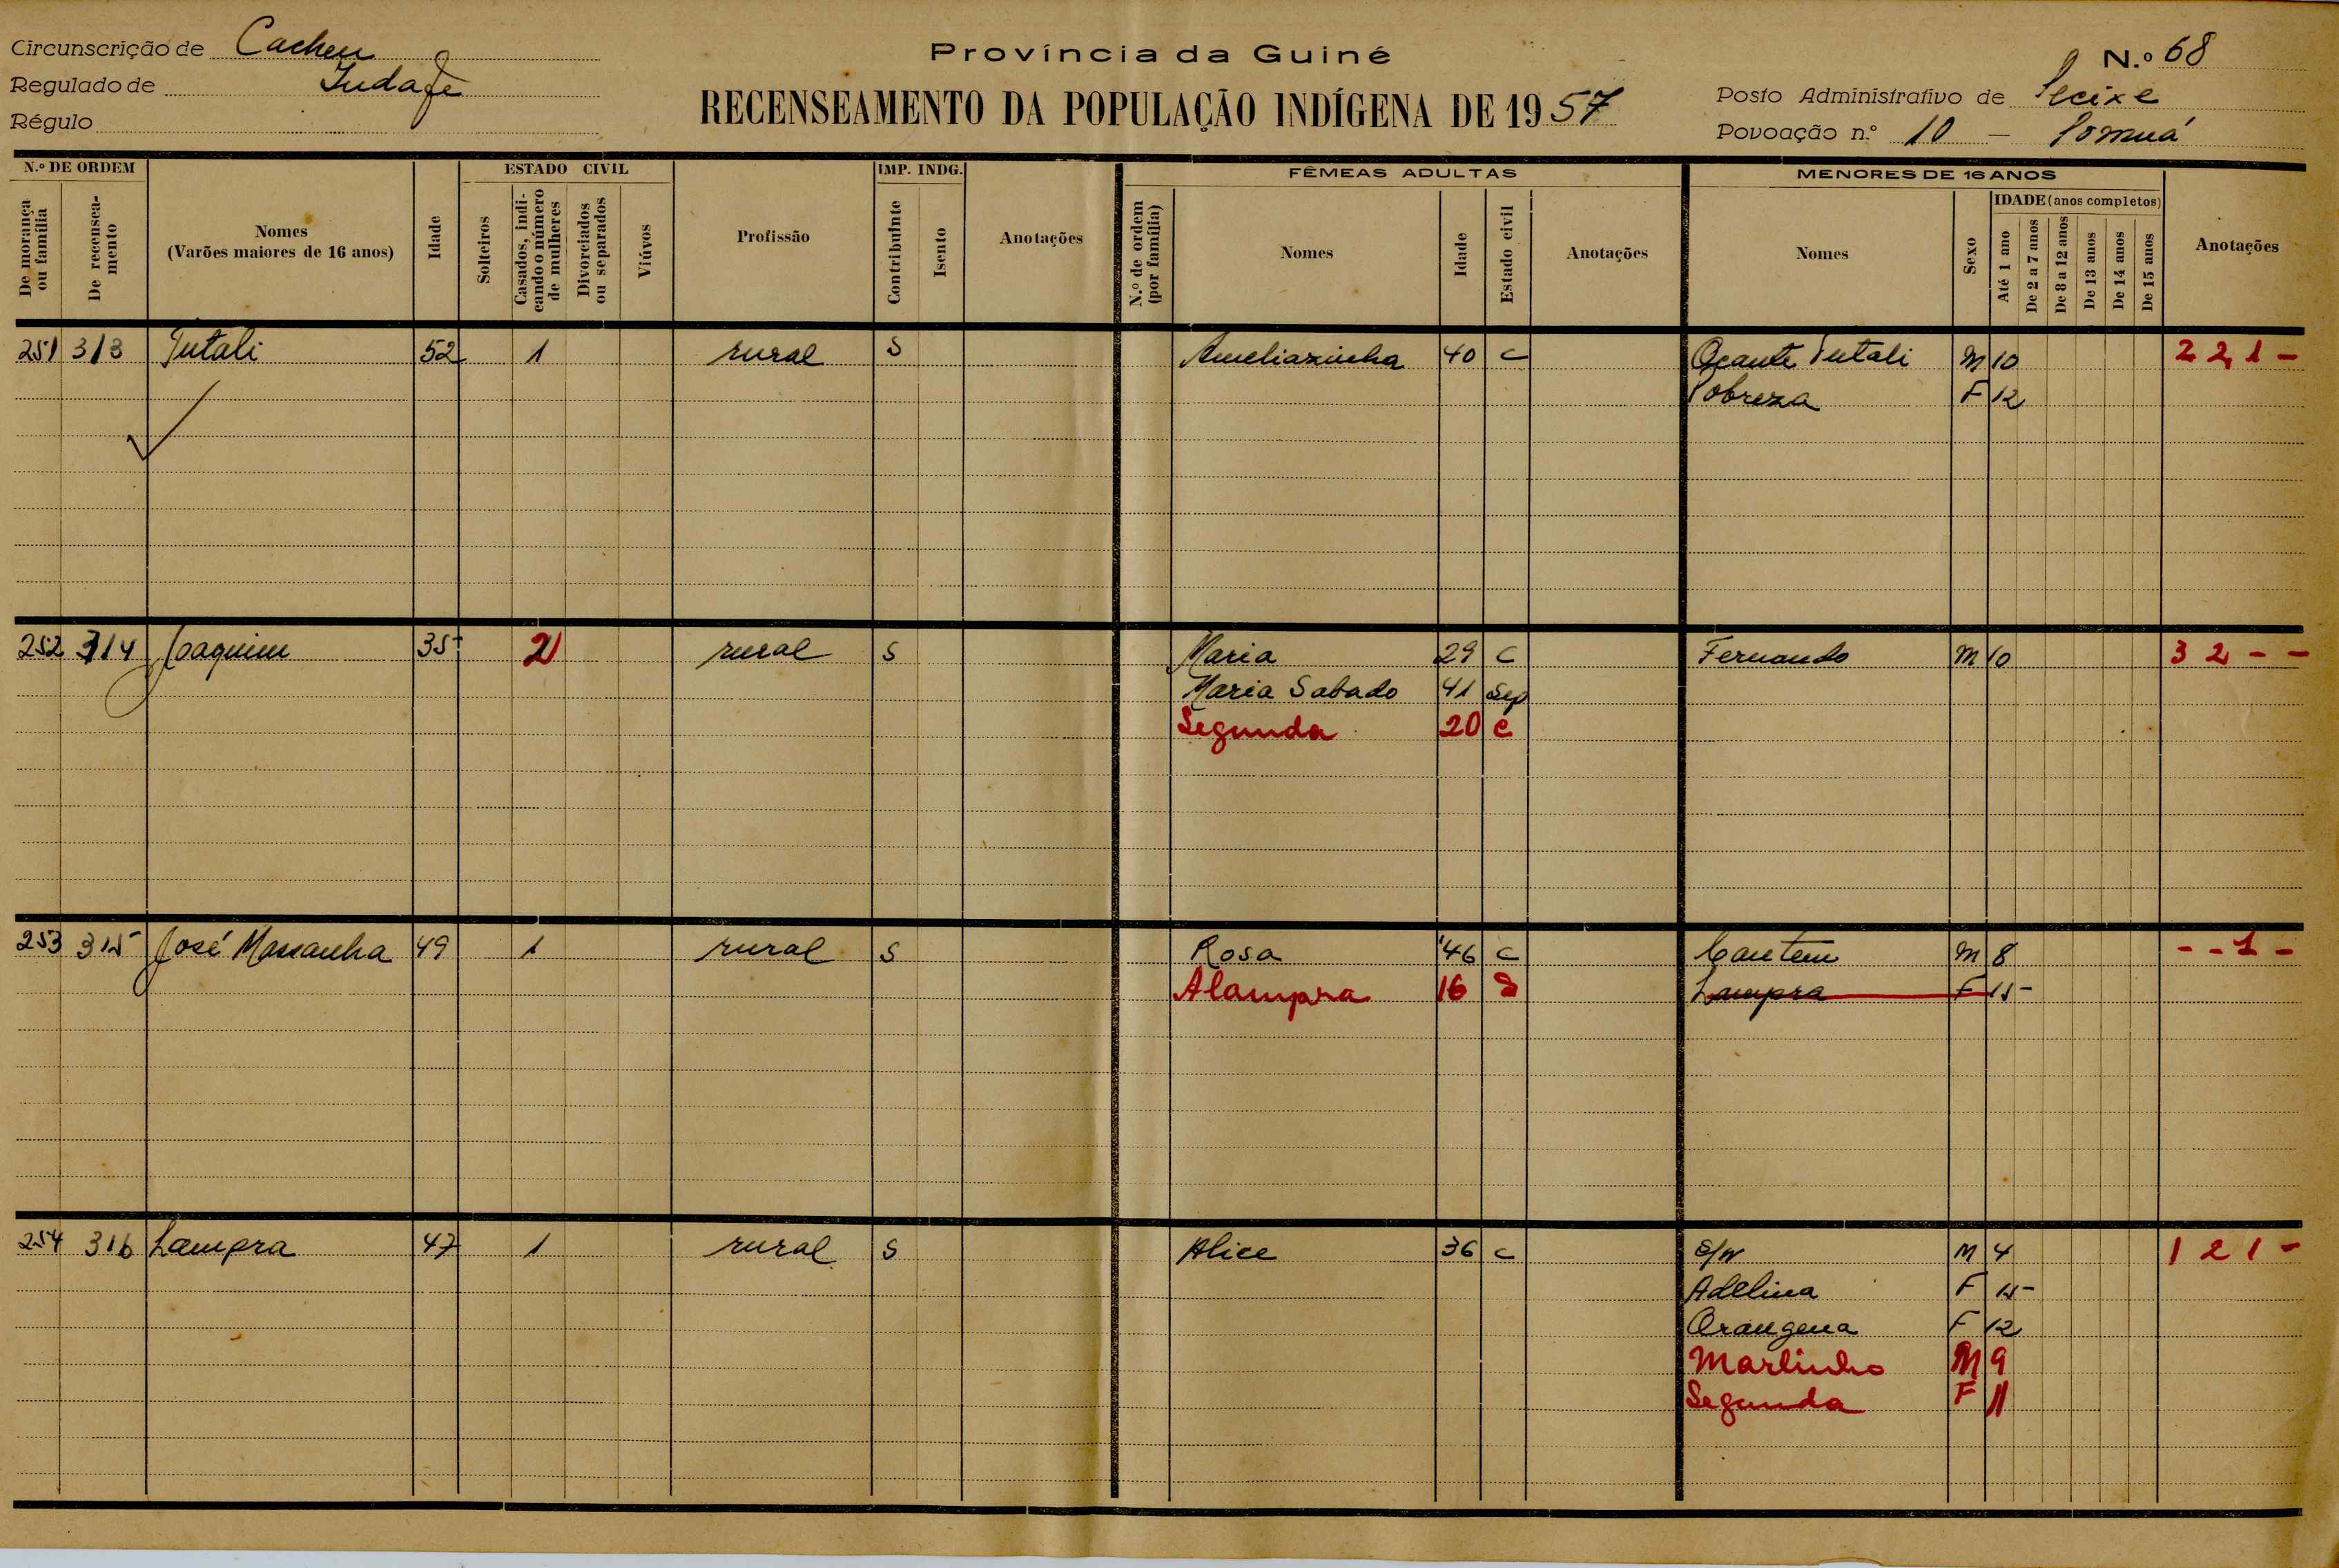 Circunscrição de Cacheu
Regulado de
Régulo
Província da Guiné
RECENSEAMENTO DA POPULAÇÃO INDÍGENA DE 1957
N.º 68
Posto Administrativo de
Povoação n.º 10 —
N.º DE ORDEM
De morança ou família
De recenseamento
Nomes
(Varões maiores de 16 anos)
Idade
ESTADO CIVIL
Solteiros
Casados, indicando o número de mulheres
Divorciados ou separados
Viúvos
Profissão
IMP. INDG.
Contribuinte
Isento
Anotações
FÊMEAS ADULTAS
N.º de ordem (por família)
Nomes
Idade
Estado civil
Anotações
MENORES DE 16 ANOS
Nomes
Sexo
IDADE (anos completos)
Até 1 ano
De 2 a 7 anos
De 8 a 12 anos
De 13 anos
De 14 anos
De 15 anos
Anotações
251 313 52 1 rural S Ameliazinha 40 C M 10 2 2 1 -
Pobreza F 12
252 314 Joaquim 35 2 rural S Maria 29 C Fernando M 10 3 2 - -
Maria Sabado 41 Sep
Segunda 20 C
253 315 José Massanha 49 1 rural S Rosa 46 C M 8 - - 1 -
Alampra 16 S Lampra F 15
254 316 Lampra 47 1 rural S Alice 36 C S/N M 4 1 2 1 -
Adelina F 15
Orangena F 12
Martinho M 9
Segunda F 11